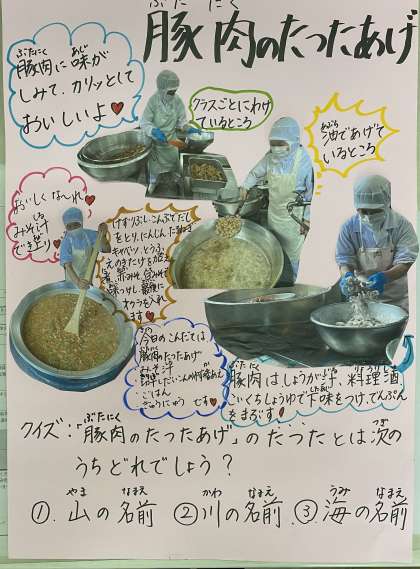 豚肉のたつたあげ
ぶた にく
豚肉に味が
しみて、カリッとして
おいしいよ♥
クラスごとにわけ
ているところ
油であげて
いるところ
おいしくな〜れ♥
みそ汁
できあがり
けずりぶし・こんぶでだし
をとり、にんじん、たまねぎ
キャベツ、とうふ、
えのきたけを加え
最後に
オクラを入れ
ます♥
今日のこんだては
豚肉のたつたあげ
みそ汁
ごはん
ぎゅうにゅう です♥
豚肉はしょうが汁、料理酒、
こいくちしょうゆで下味をつけ、でんぷん
をまぶす!
クイズ:「豚肉のたつたあげ」のたつたとは次の
うちどれでしょう?
①.山の名前 ②川の名前 ③.海の名前